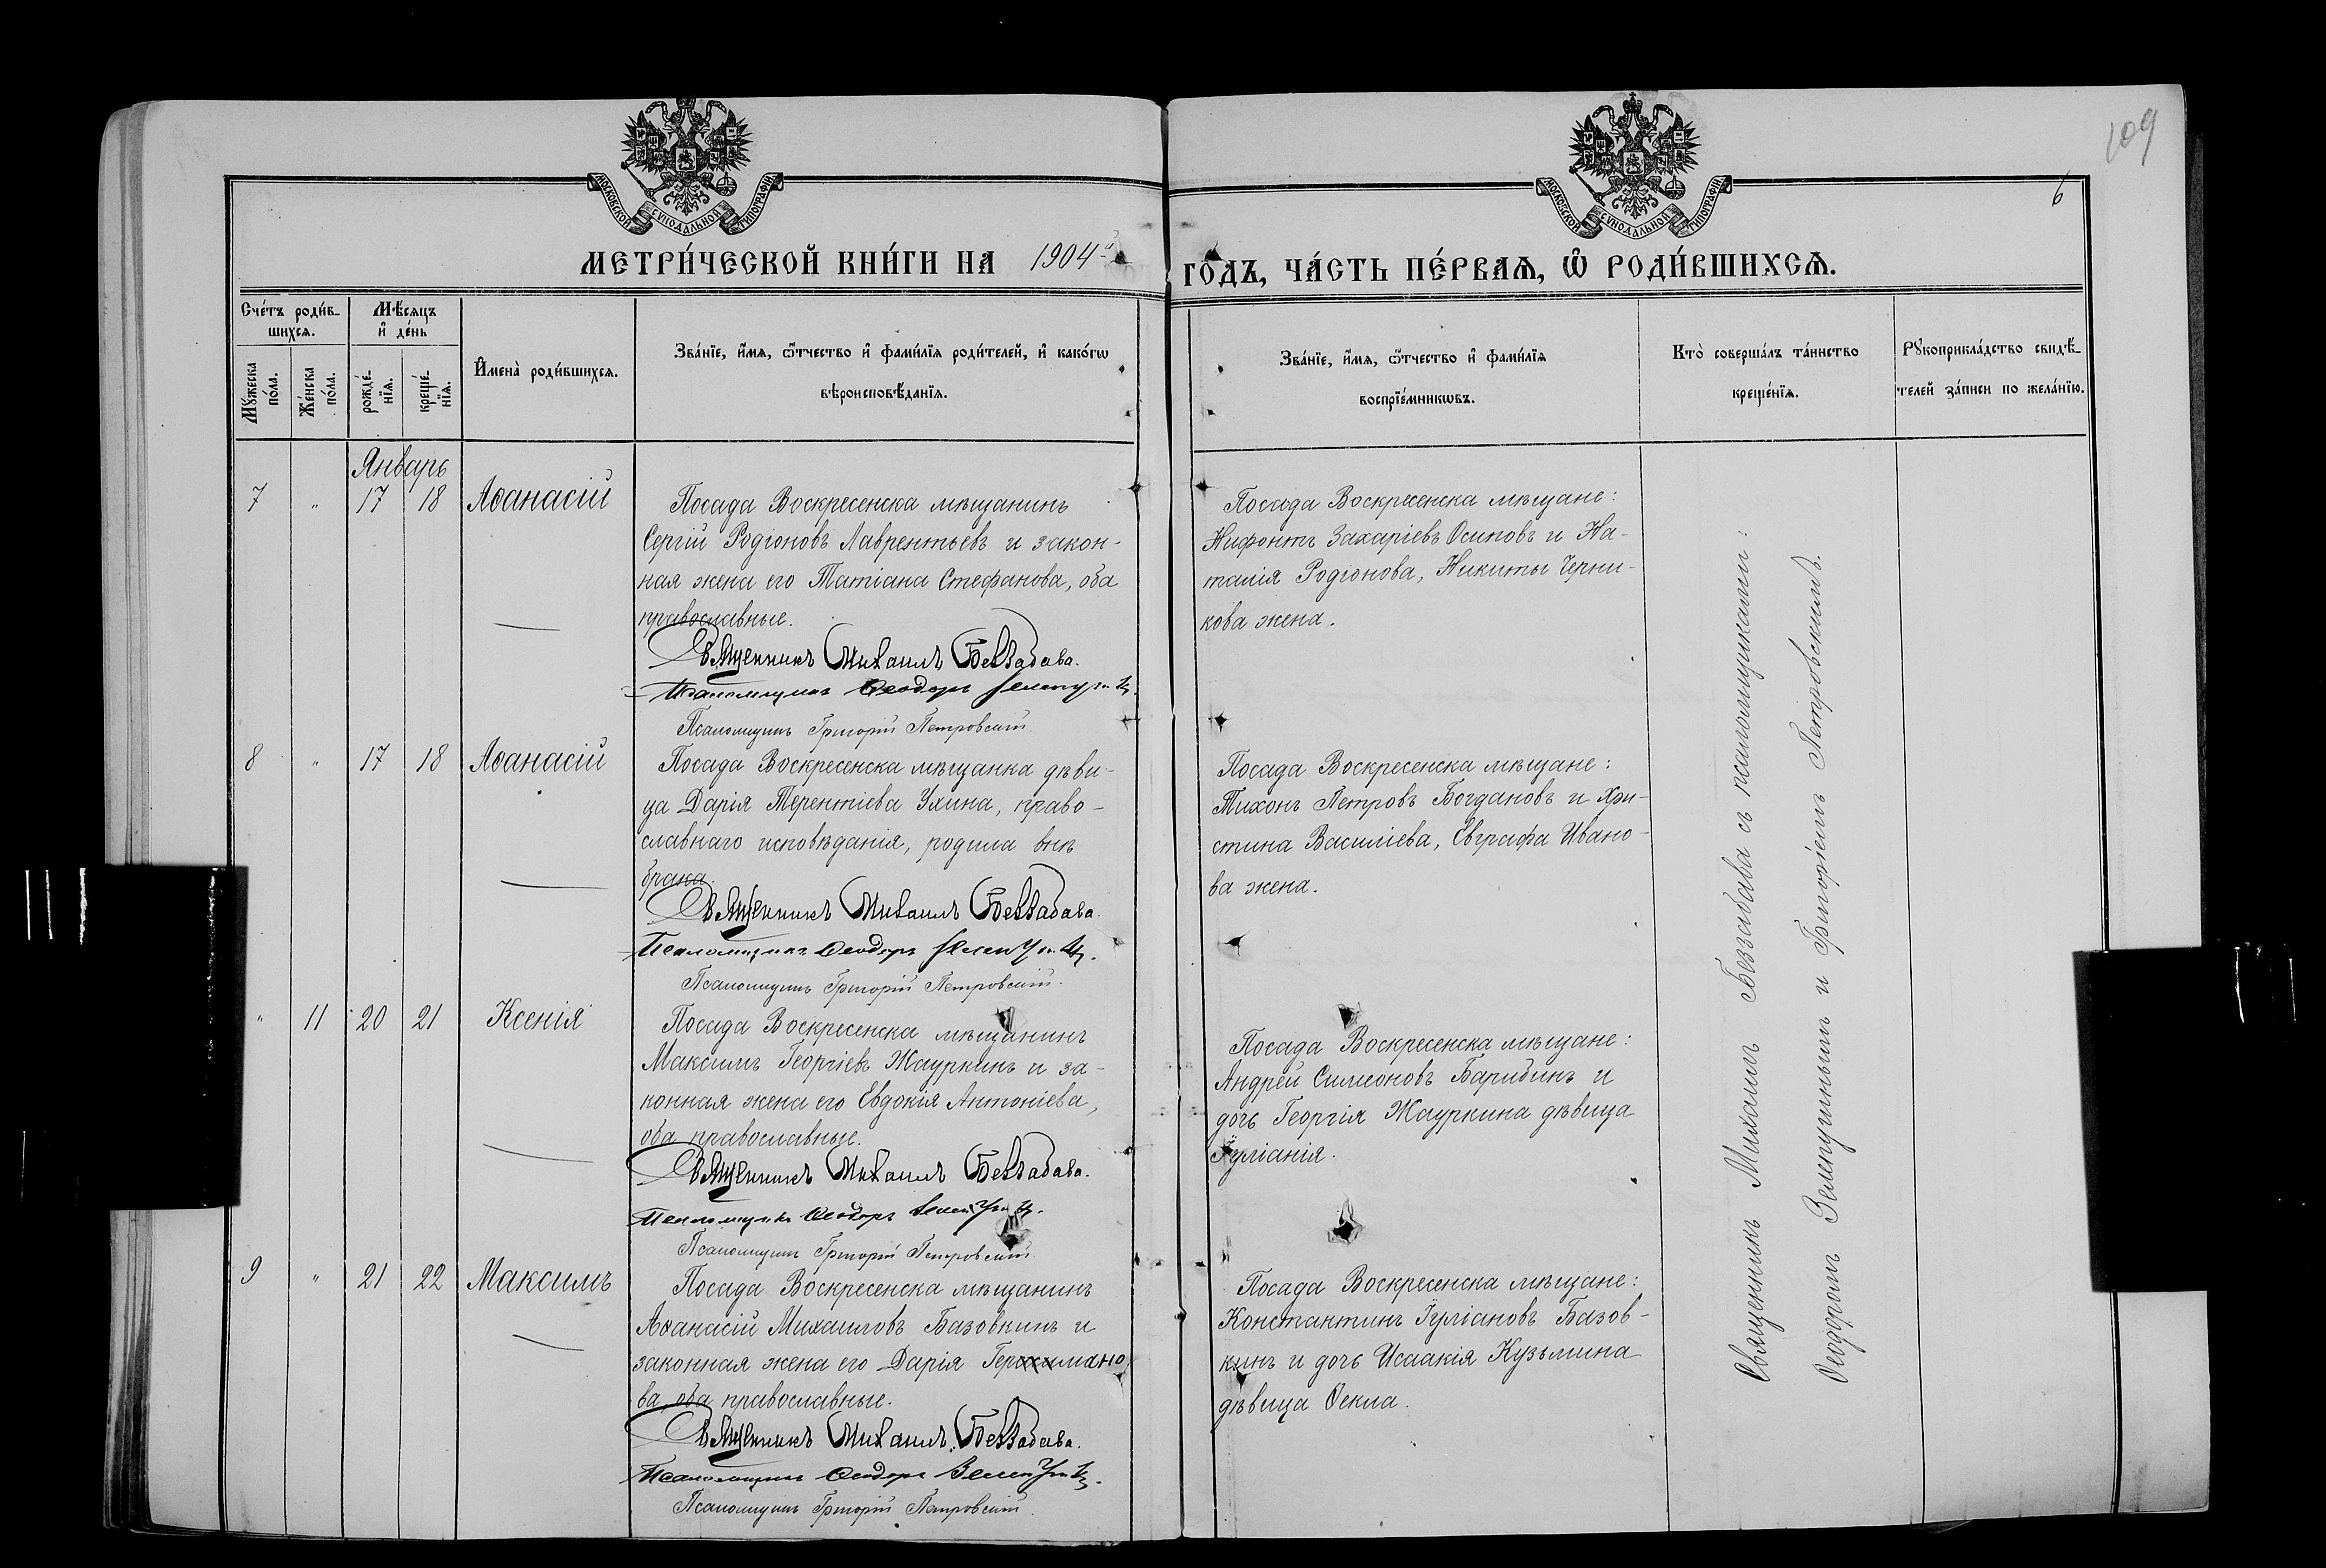 109
6
МОСКОВСКОЙ СѴНОДАЛЬНОЙ ТИПОГРАФІИ
МОСКОВСКОЙ СѴНОДАЛЬНОЙ ТИПОГРАФІИ
МЕТРИ́ЧЕСКОЙ КНИ́ГИ НА 1904й ГО́ДЪ, ЧА́СТЬ ПЕ́РВАѦ, Ѽ РОДИ́ВШИХСѦ.
Сче́тъ роди́в-
шихсѧ.
Мѣ́сѧцъ
и҆ де́нь
Мꙋ́жеска
по́ла.
Же́нска
по́ла.
рожде́-
нїѧ.
креще́-
нїѧ.
И҆мена̀ роди́вшихсѧ.
Зва́нїе, и҆́мѧ, ѻ҆́тчество и҆ фами́лїѧ роди́телей, и҆ како́гѡ
вѣроисповѣ́данїѧ.
Зва́нїе, и҆́мѧ, ѻ҆́тчество и҆ фами́лїѧ
воспрїе́мникѡвъ.
Кто̀ соверша́лъ та́инство
креще́нїѧ.
Рꙋкоприкла́дство свидѣ́-
телей за́писи по жела́нїю.
Январь
7 " 17 18 Аѳанасій
Посада Воскресенска мѣщанинъ
Сергій Родіоновъ Лаврентьевъ и закон-
ная жена его Татіана Стефанова, оба
православные.
Священникъ Михаилъ Беззабава.
Псаломщикъ Ѳеодоръ
Псаломщикъ Григорій Петровскій
Посада Воскресенска мѣщане:
Нифонтъ Захаріевъ Осиповъ и На-
талія Родіонова, Никиты Черни-
кова жена.
8 " 17 18 Аѳанасій
Посада Воскресенска мѣщанка дѣви-
ца Дарія Терентіева Ухина, право-
славнаго исповѣданія, родила внѣ
брака.
Священникъ Михаилъ Беззабава.
Псаломщикъ Ѳеодоръ
Псаломщикъ Григорій Петровскій.
Посада Воскресенска мѣщане:
Тихонъ Петровъ Богдановъ и Хри-
стина Василіева, Евграфа Ивано-
ва жена.
" 11 20 21 Ксенія
Посада Воскресенска мѣщанинъ
Максимъ Георгіевъ Жауркинъ и за-
конная жена его Евдокія Антоніева,
оба православные.
Священникъ Михаилъ Беззабава.
Псаломщикъ Ѳеодоръ
Псаломщикъ Григорій Петровскій.
Посада Воскресенска мѣщане:
Андрей Симеоновъ Барибинъ и
дочь Георгія Жауркина дѣвица
Іуліанія.
9 " 21 22 Максимъ
Посада Воскресенска мѣщанинъ
Аѳанасій Михаиловъ Базовкинъ и
законная жена его Дарія Германо-
ва, оба православные.
Священникъ Михаилъ Беззабава.
Псаломщикъ Ѳеодоръ
Псаломщикъ Григорій Петровскій.
Посада Воскресенска мѣщане:
Константинъ Іуліановъ Базов-
кинъ и дочь Исаакія Кузьмина
дѣвица Ѳекла.
Священникъ Михаилъ Беззабава съ псаломщиками:
Ѳеодоромъ и Григоріемъ Петровскимъ.